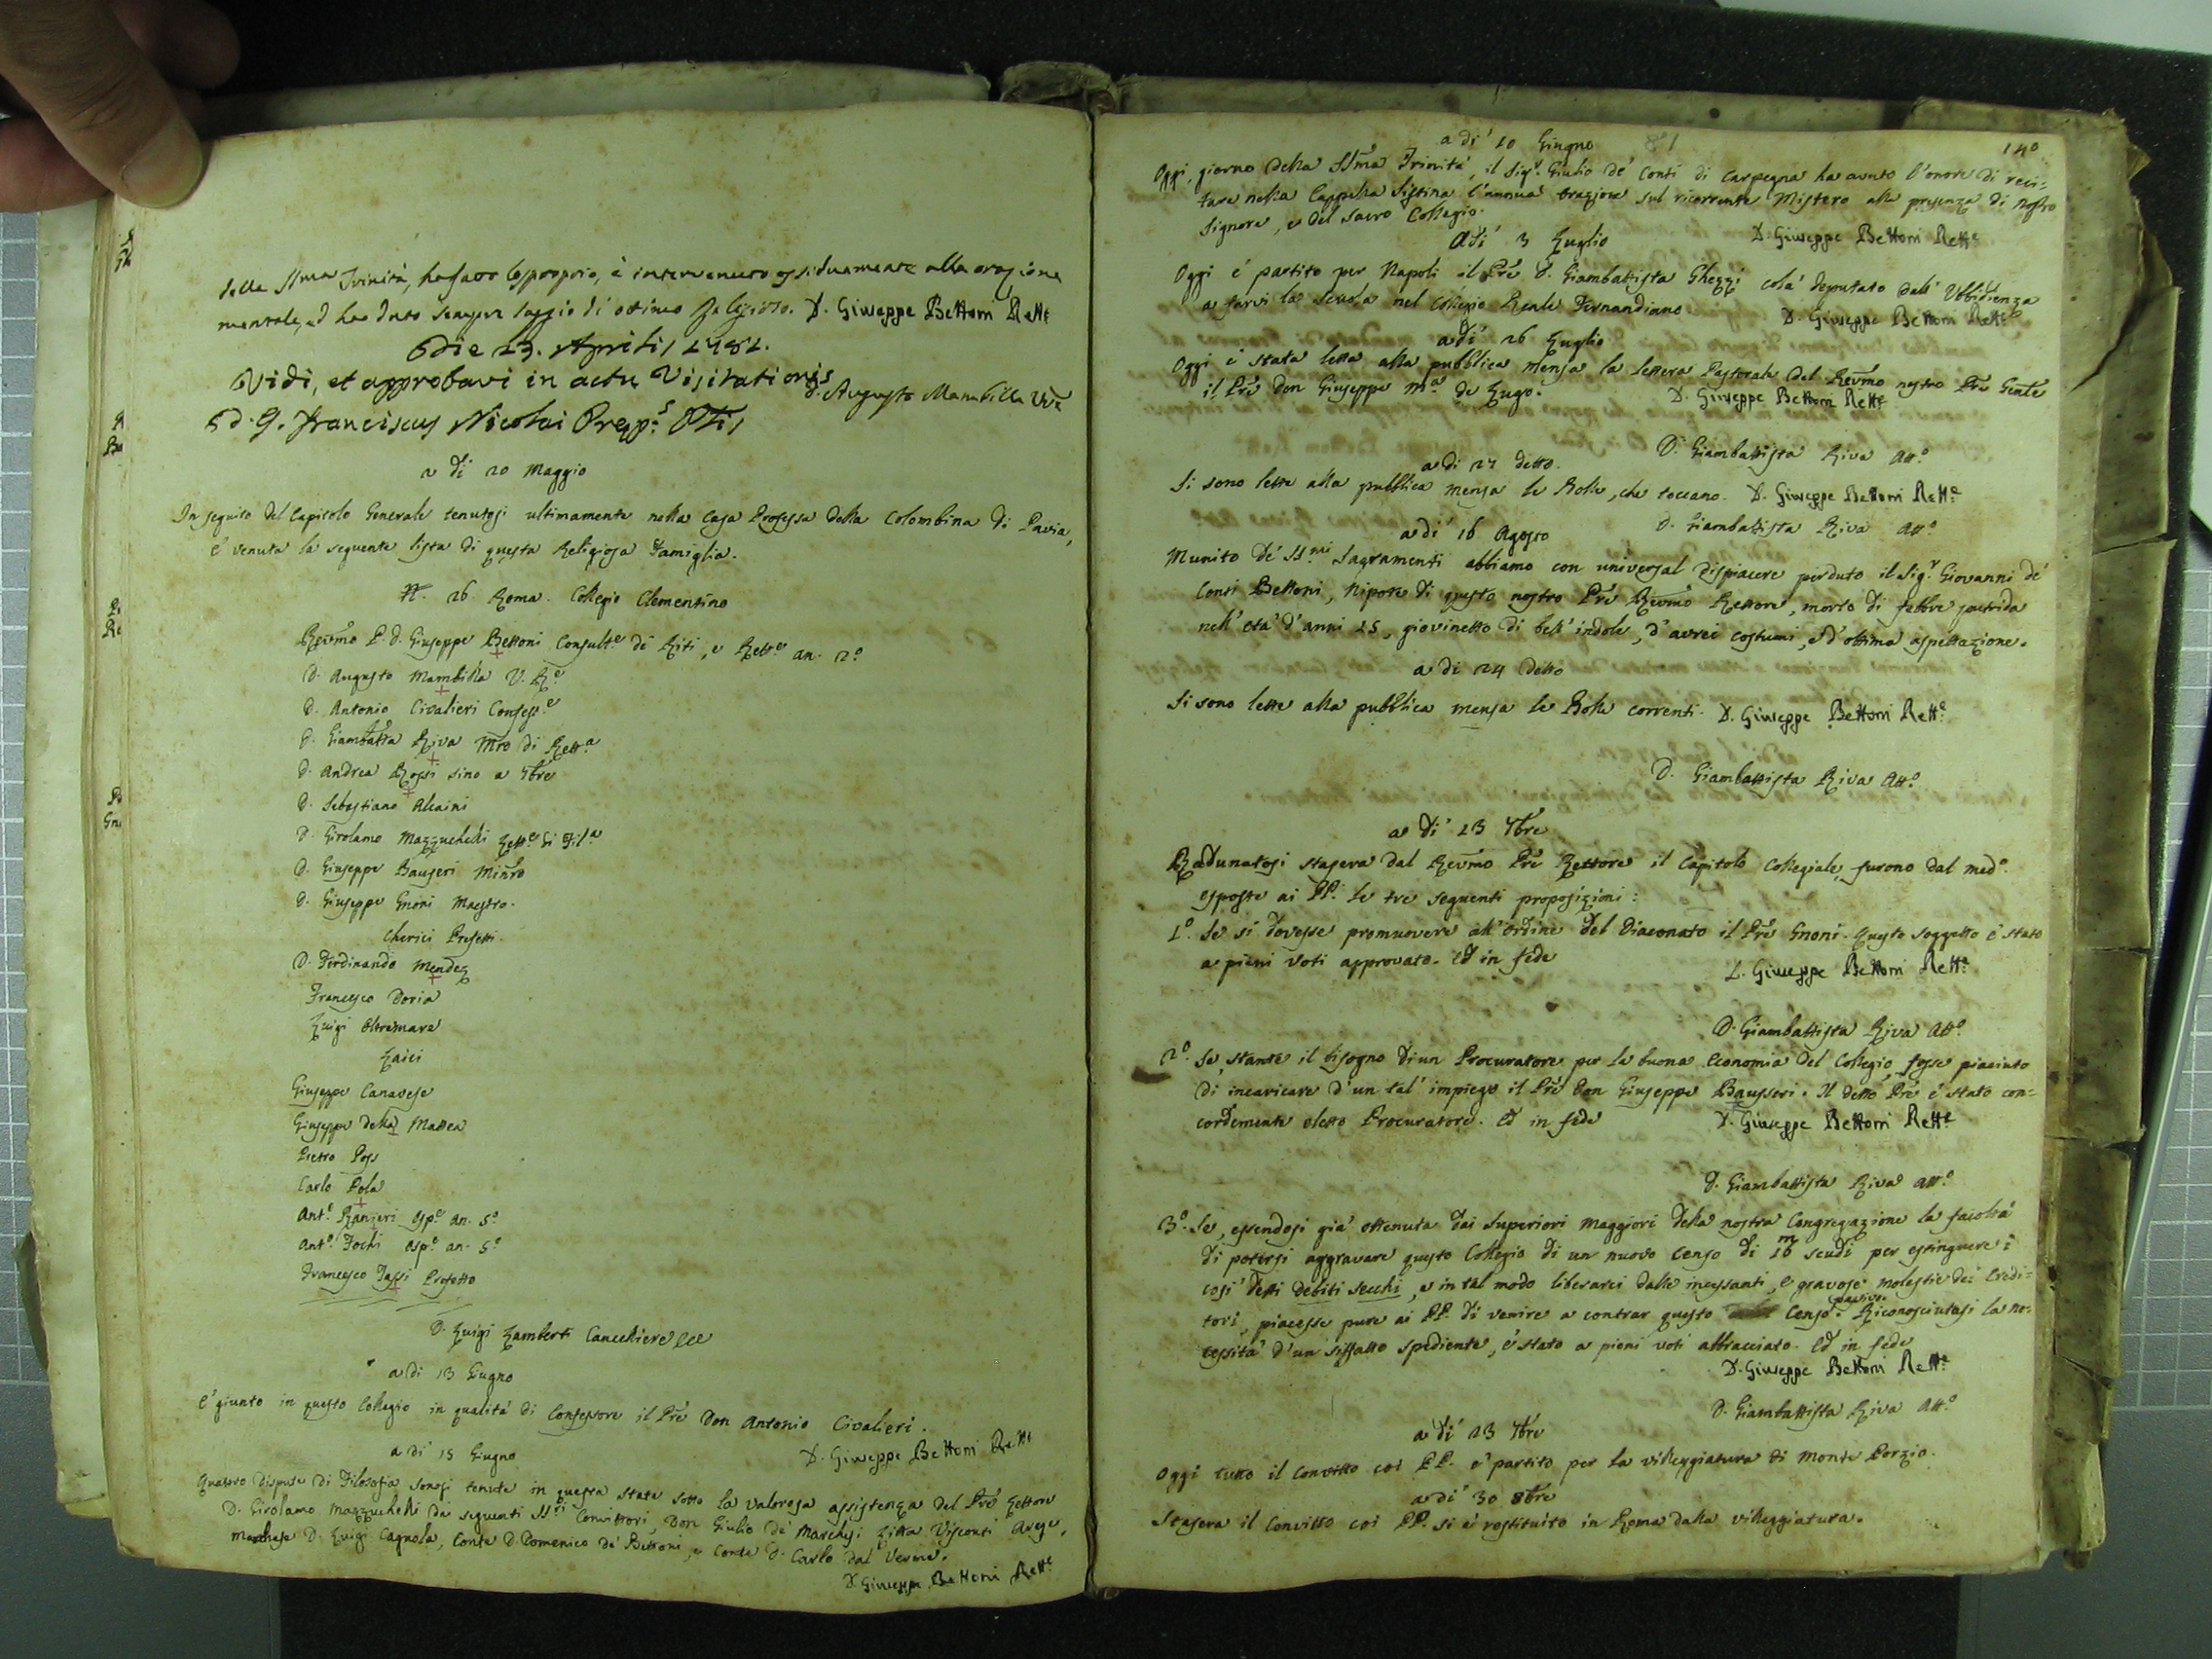 della SSma Trinità, ha fatto lo proprio, è intervenuto assiduamente alla orazione
mentale, ed ha dato sempre saggio di ottimo Religioso. D. Giuseppe Bettoni Rett.e
Die 29. Aprilis 1781.
Vidi, et approbavi in actu Visitationis
D. Augusto Mambilla
D. J. Franciscus Nicolai Prepp.s Plis
a di 20 Maggio
In seguito del Capitolo Generale tenutosi ultimamente nella Casa Professa della Colombina di Pavia,
è venuta la seguente lista di questa Religiosa Famiglia.
N. 26. Roma. Collegio Clementino
Revmo P. D. Giuseppe Bettoni Consult.e de' Riti, e Rett.e an. 2.o
D. Augusto Mambilla V. R.e
D. Antonio Civalieri Confess.e
D. Giambatta Riva Mro di Rett.a
D. Andrea Rossi sino a 7bre
D. Sebastiano Alcaini
D. Girolamo Mazzuchelli Lett.e di Fil.a
D. Giuseppe Bauseri Minro
D. Giuseppe Gnoni Maestro.
Cherici Prefetti.
D. Ferdinando Mendez
Francesco Doria
Luigi Oltremare
Laici
Giuseppe Canavese
Giuseppe Della Mattea
Pietro Poss
Carlo Pola
Ant.o Ranieri Osp.e an. 5.o
Ant.o Fochi Osp.e an. 5.o
Francesco Tassi Prefetto
D. Luigi Lamberti Cancelliere
a di 13 Giugno
È giunto in questo Collegio in qualità di Confessore il Pré Don Antonio Civalieri.
D. Giuseppe Bettoni Rett.e
a di 15 Giugno
Quattro dispute di Filosofia sonosi tenute in questa state sotto la valorosa assistenza del Pré Lettore
D. Girolamo Mazzuchelli dai seguenti SS.ri Convittori, Don Giulio de' Marchesi Litta Visconti Arese,
Marchese D. Luigi Cagnola, Conte D. Domenico de' Bettoni, e Conte D. Carlo Dal Verme.
D. Giuseppe Bettoni Rett.e
a di' 10 Giugno
140
Oggi, giorno della SSma Trinità, il Sig.r Giulio de' Conti di Carpegna ha avuto l'onore di reci-
tare nella Cappella Sistina l'annua orazione sul ricorrente Mistero alla presenza di Nostro
Signore, e del Sacro Collegio.
D. Giuseppe Bettoni Rett.e
a di' 3 Luglio
Oggi è partito per Napoli il Pré D. Giambattista Ghezzi colà deputato dall'Ubbidienza
a farvi la scuola nel Collegio Reale Ferdinandiano.
D. Giuseppe Bettoni Rett.e
a di' 26 Luglio
Oggi è stata letta alla pubblica mensa la lettera Pastorale del Revmo nostro Pré Genle
il Pré Don Giuseppe M.a de Lugo.
D. Giuseppe Bettoni Rett.e
D. Giambattista Riva Att.o
a di 27 detto.
Si sono lette alla pubblica mensa le Bolle, che toccano. D. Giuseppe Bettoni Rett.e
D. Giambattista Riva Att.o
a di' 16 Agosto
Munito de' SS.mi Sagramenti abbiamo con universal dispiacere perduto il Sig.r Giovanni de'
Conti Bettoni, Nipote di questo nostro Pré Revmo Rettore, morto di febbre putrida
nell'età d'anni 15, giovinetto di bell'indole, d'aurei costumi, e d'ottima aspettazione.
a di 24 detto
Si sono lette alla pubblica mensa le Bolle correnti. D. Giuseppe Bettoni Rett.e
D. Giambattista Riva Att.o
a di' 13 7bre
Radunatosi stasera dal Revmo Pré Rettore il Capitolo Collegiale, furono dal med.o
esposte ai PP. le tre seguenti proposizioni:
1.o Se si dovesse promuovere all'Ordine del Diaconato il Pré Gnoni. Questo soggetto è stato
a pieni voti approvato. Ed in fede
D. Giuseppe Bettoni Rett.e
D. Giambattista Riva Att.o
2.o Se, stante il bisogno di un Procuratore per la buona economia del Collegio, fosse piaciuto
di incaricare d'un tal' impiego il Pré Don Giuseppe Bausseri. Il detto Pré è stato con-
cordemente eletto Procuratore. Ed in fede
D. Giuseppe Bettoni Rett.e
D. Giambattista Riva Att.o
3.o Se, essendosi già ottenuta dai Superiori Maggiori della nostra Congregazione la facoltà
di potersi aggravare questo Collegio di un nuovo Censo di 16 m scudi per estinguere i
così detti debiti secchi, e in tal modo liberarci dalle incessanti, e gravose molestie dei Credi-
tori, piacesse pure ai PP. di venire a contrar questo Censo passivo. Riconosciutasi la ne-
cessità d'un siffatto spediente, è stato a pieni voti abbracciato. Ed in fede
D. Giuseppe Bettoni Rett.e
D. Giambattista Riva Att.o
a di' 23 7bre
Oggi tutto il Convitto coi PP. è partito per la villeggiatura di Monte Porzio.
a di' 30 8bre
Stasera il Convitto coi PP. si è restituito in Roma dalla villeggiatura.